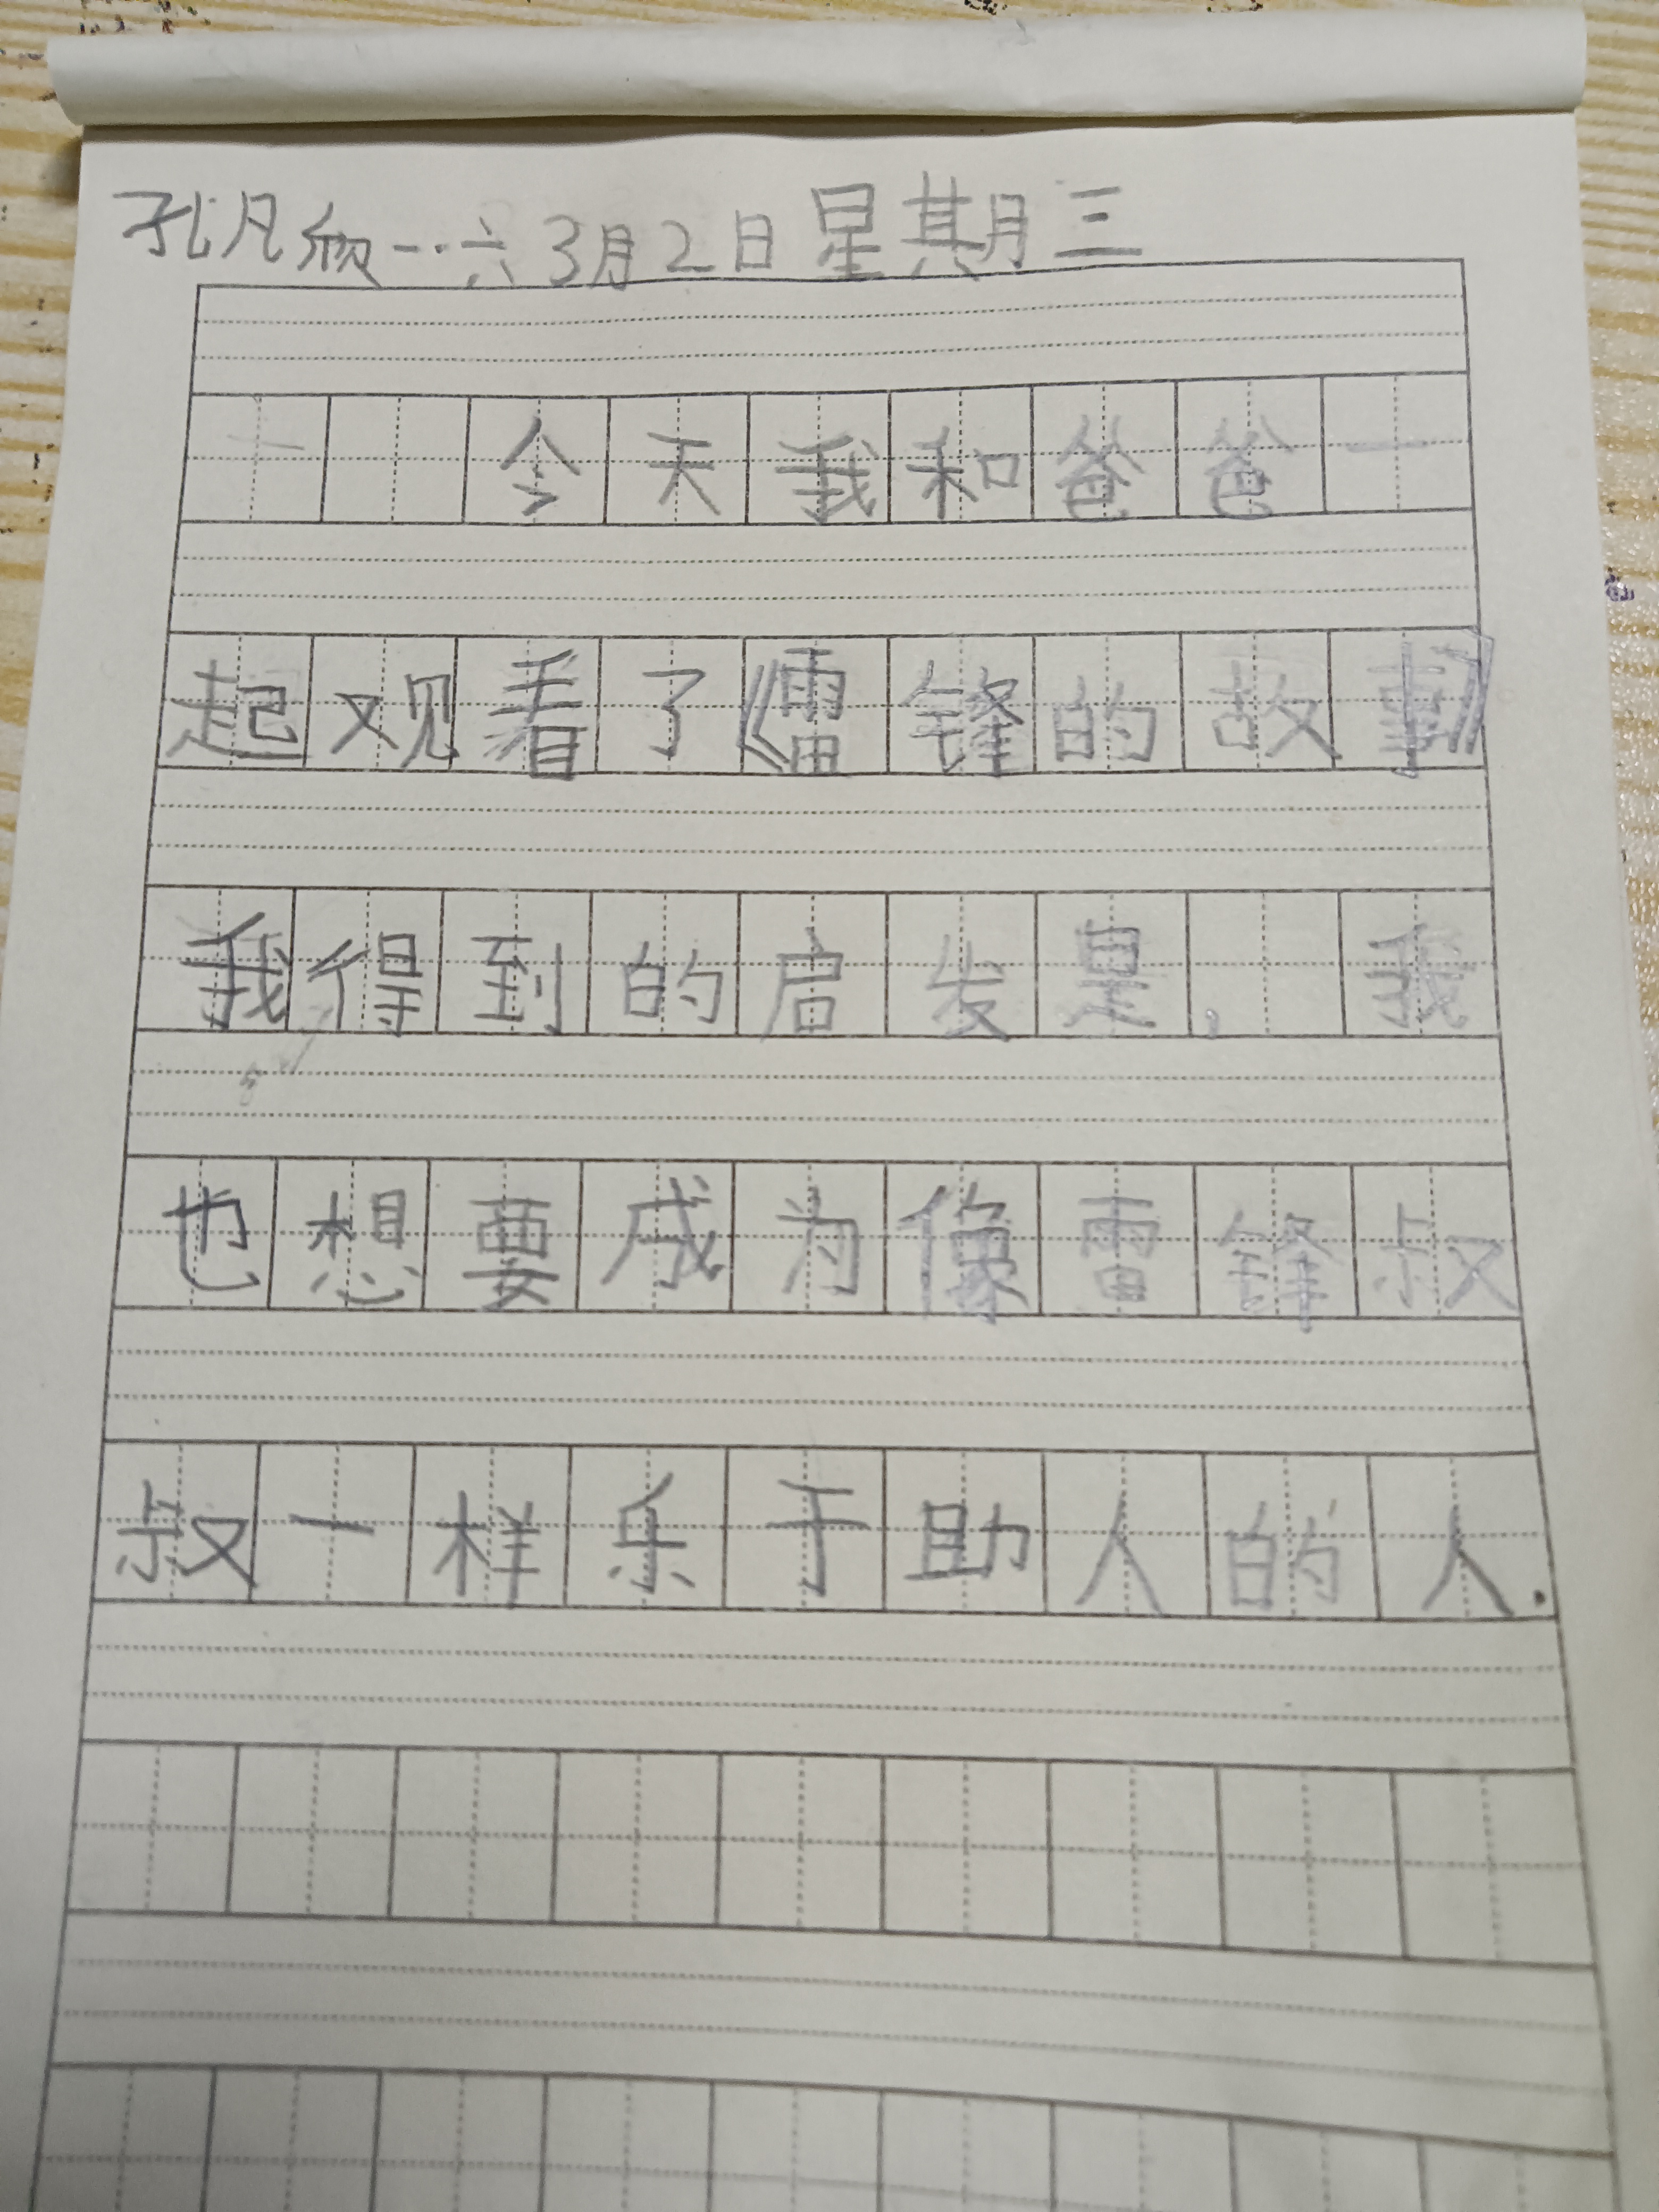 孔凡 一.六 3月2日星期三
今天我和爸爸一
起观看了《雷锋的故事》
我得到的启发是，我
也想要成为像雷锋叔
叔一样乐于助人的人.